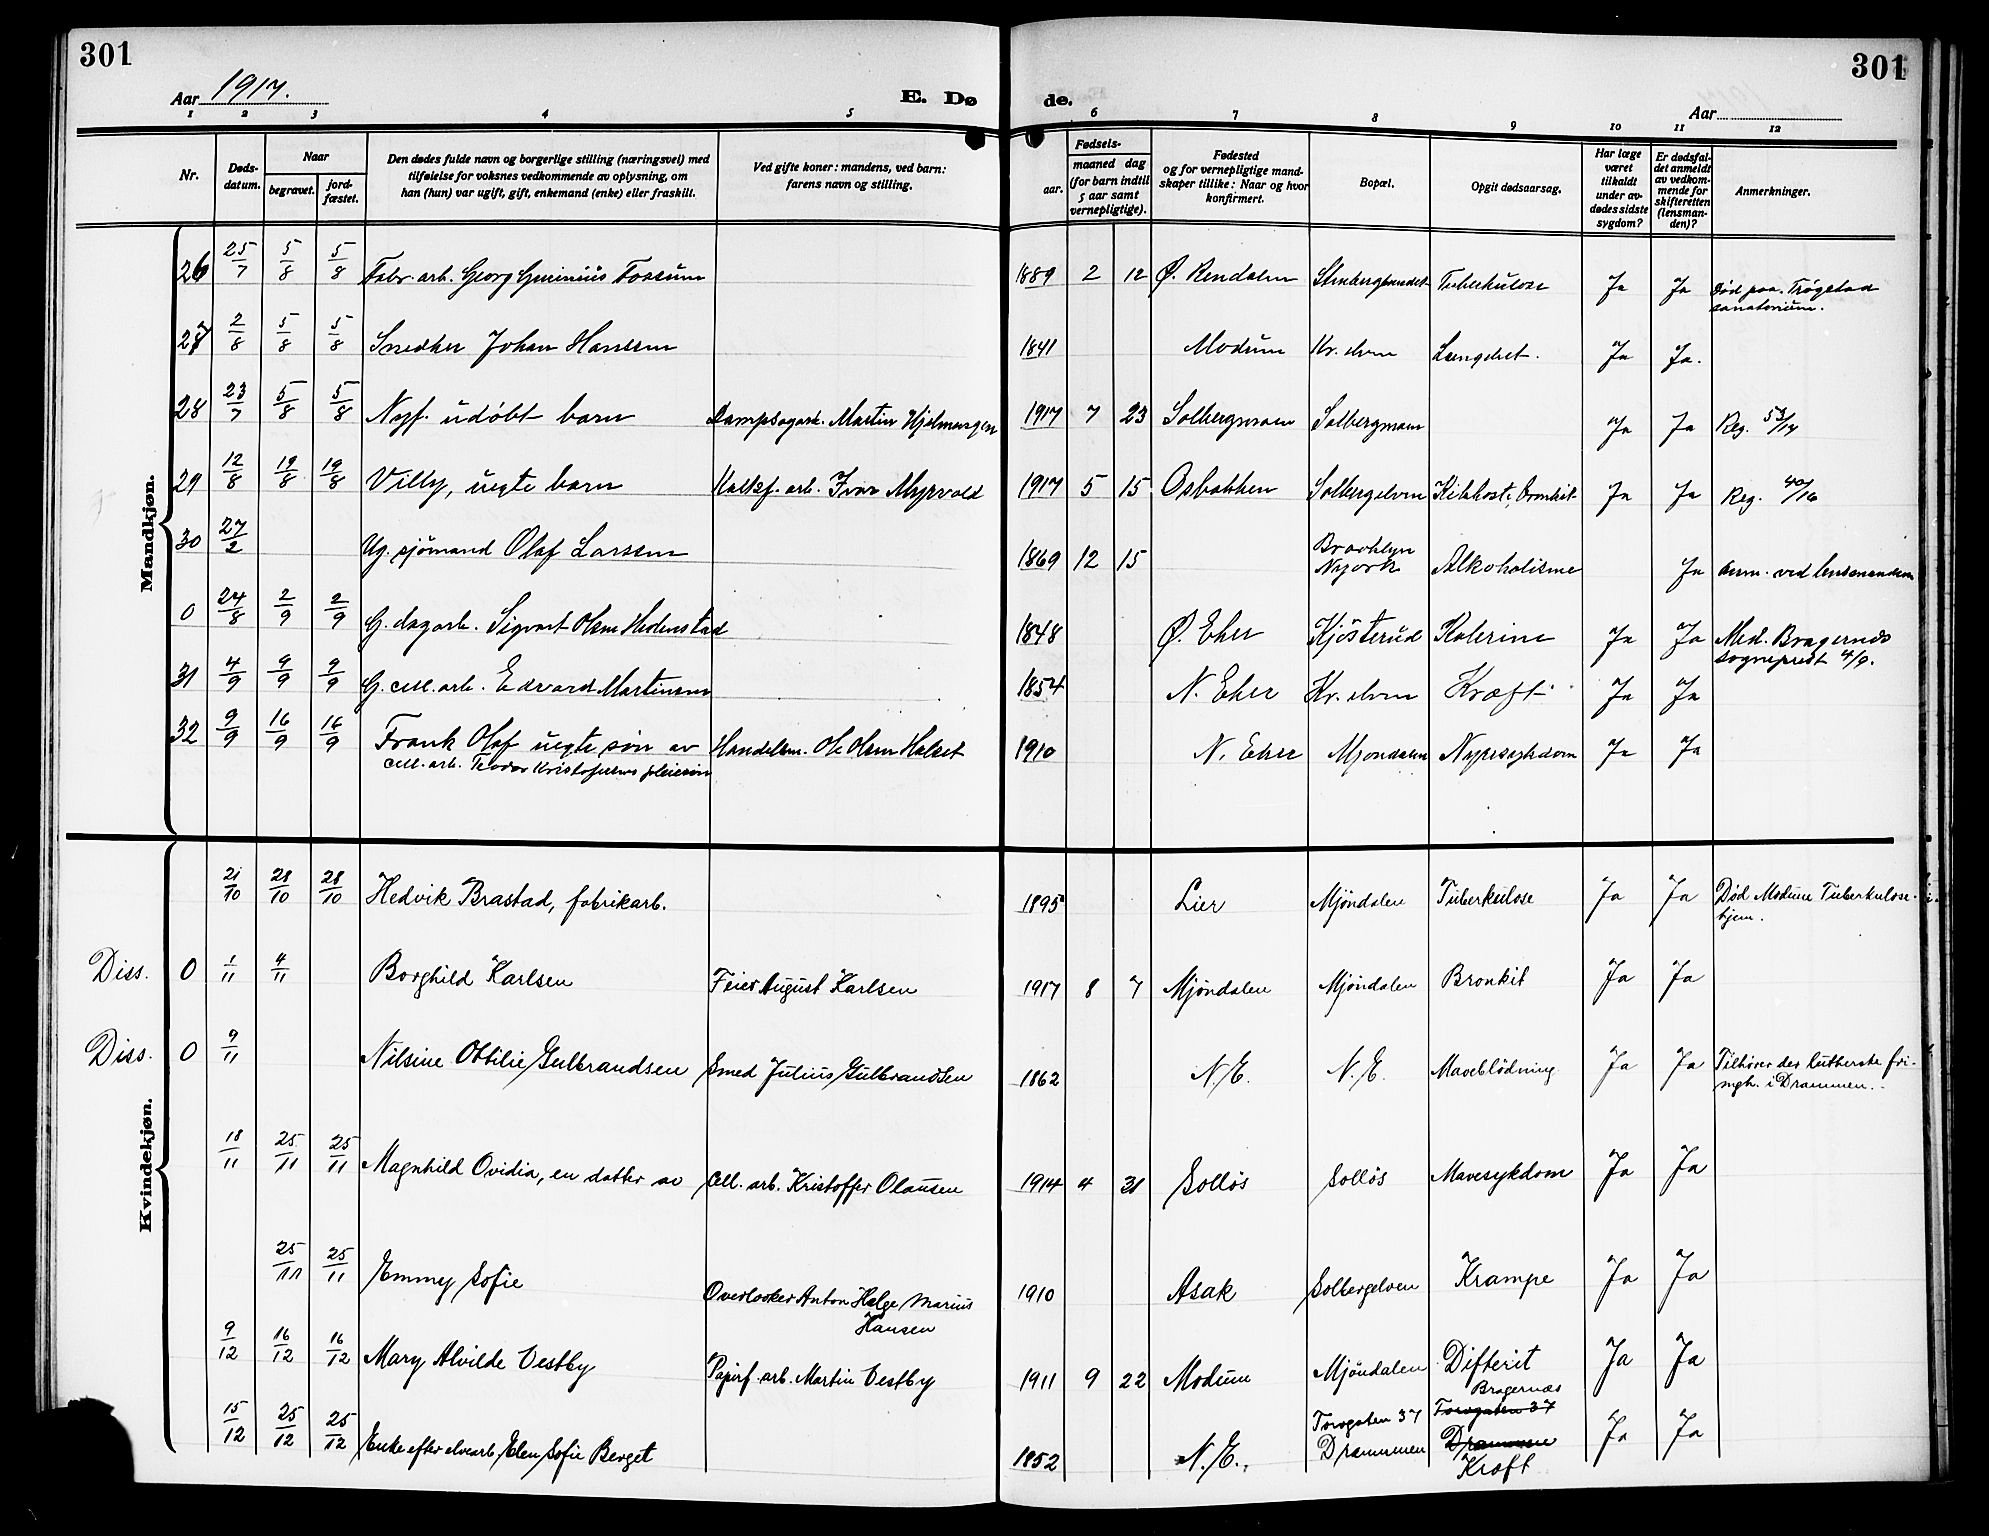 301
301
Aar 1917.
E. Dø
de.
Aar
1 2 3 4 5 6 7 8 9 10 11 12
Nr.
Døds-
datum.
Naar
begravet.
jord-
fæstet.
Den dødes fulde navn og borgerlige stilling (næringsvei) med
tilføielse for voksnes vedkommende av oplysning, om
han (hun) var ugift, gift, enkemand (enke) eller fraskilt.
Ved gifte koner: mandens, ved barn:
farens navn og stilling.
Fødsels-
aar.
maaned dag
(for barn indtil
5 aar samt
vernepligtige).
Fødested
og for vernepligtige mand-
skaper tillike: Naar og hvor
konfirmert.
Bopæl.
Opgit dødsaarsag.
Har læge
været
tilkaldt
under av-
dødes sidste
sygdom?
Er dødsfal-
det anmeldt
av vedkom-
mende for
skifteretten
(lensman-
den)?
Anmerkninger.
Mandkjøn.
26 25/7 5/8 5/8 Fabr. arb. Georg Fossum 1889 2 12 Ø. Rendalen Tuberkulose Ja Ja Død paa Trøgstad
sanatorium.
27 2/8 5/8 5/8 Snedker Johan Hansen 1841 Modum Kr. elven Ja Ja.
28 23/7 5/8 5/8 Nyf. udöbt barn Dampsagarb. Martin Hjelmengen 1917 7 23 Solbergmoen Solbergmoen Ja Ja Reg. 53/17
29 12/8 19/8 19/8 Villy, uegte barn Kalkf. arb. Ivar Myrvold 1917 5 15 Osbakken Solbergelven Kikhoste, Bronkit Ja Ja Reg. 40/16
30 27/2 Ug. sjömand Olaf Larssen 1869 12 15 Brooklyn
Nyork Alkoholisme Ja Anm. ved lensmanden
0 24/8 2/9 2/9 G. dagarb. Sigvart Olsen Hedenstad 1848 Ø. Eker Kjösterud Kolerine Ja Ja Med. Bragernes
sogneprest 4/9.
31 4/9 9/9 9/9 G. cell. arb. Edvard Martinsen 1854 N. Eker Kr. elven Kræft Ja Ja
32 9/9 16/9 16/9 Frank Olaf uegte søn av
cell. arb. Teodor Kristofersens pleiesön Handelsm. Ole Olsen Halset 1910 N. Eker Mjöndalen Nyresykdom Ja Ja
Kvindekjøn.
21/10 28/10 28/10 Hedvik Brastad, fabrikarb. 1895 Lier Mjöndalen Tuberkulose Ja Ja Død Modum Tuberkulose-
hjem.
Diss. 0 1/11 4/11 Borghild Karlsen Feier August Karlsen 1917 8 7 Mjöndalen Mjöndalen Bronkit Ja Ja
Diss. 0 9/11 Nilsine Ottilie Gulbrandsen Smed Julius Gulbrandsen 1862 N. E. N. E. Maveblödning Ja Ja Tilhører den lutherske fri-
mgh. i Drammen.
18/11 25/11 25/11 Magnhild Ovidia, en datter av Cell. arb. Kristoffer Olausen 1914 4 31 Sollös Sollös Mavesykdom Ja Ja
25/11 25/11 Emmy Sofie Overlooker Anton Helge Marius
Hansen 1910 Asak Solbergelven Krampe Ja Ja
9/12 16/12 16/12 Mary Alvilde Vestby Papirf. arb. Martin Vestby 1911 9 22 Modum Mjöndalen Difterit Ja Ja
15/12 25/12 25/12 Enke efter elvearb. Elen Sofie Berget 1852 N. E. Torvgaten 37
Drammen Bragernæs
Torvgaten 37
Drammen
Kræft Ja Ja